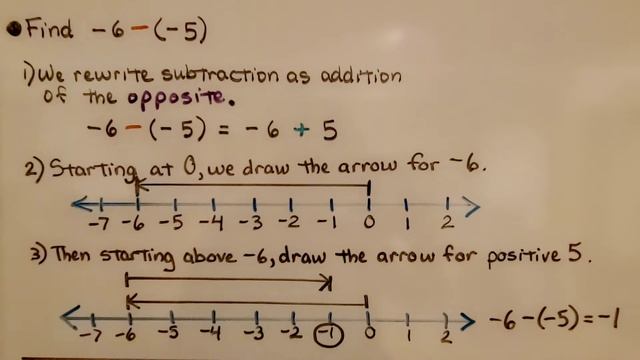 • Find -6 - (-5)
1) We rewrite subtraction as addition
of the opposite.
-6 - (-5) = -6 + 5
2) Starting at 0, we draw the arrow for -6.
-7 -6 -5 -4 -3 -2 -1 0 1 2
3) Then starting above -6, draw the arrow for positive 5.
-7 -6 -5 -4 -3 -2 -1 0 1 2 -6-(-5)=-1